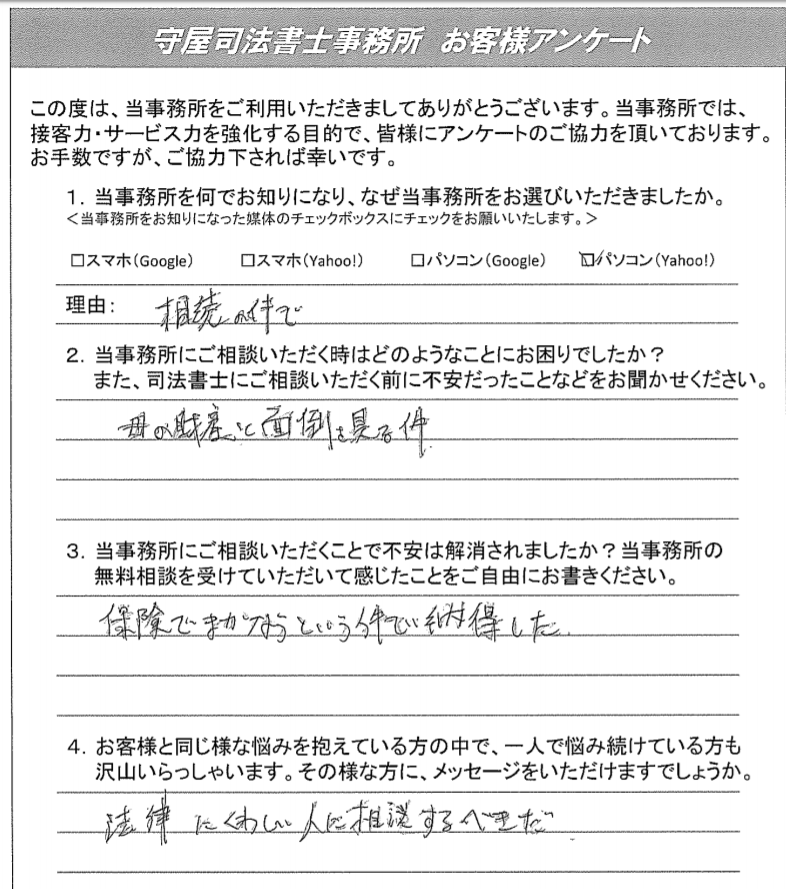 守屋司法書士事務所 お客様アンケート
この度は、当事務所をご利用いただきましてありがとうございます。当事務所では、
接客力・サービス力を強化する目的で、皆様にアンケートのご協力を頂いております。
お手数ですが、ご協力下されば幸いです。
1. 当事務所を何でお知りになり、なぜ当事務所をお選びいただきましたか。
<当事務所をお知りになった媒体のチェックボックスにチェックをお願いいたします。>
□スマホ(Google) □スマホ(Yahoo!) □パソコン(Google) ☑パソコン(Yahoo!)
理由: 相続の件で
2. 当事務所にご相談いただく時はどのようなことにお困りでしたか?
また、司法書士にご相談いただく前に不安だったことなどをお聞かせください。
母の財産と面倒を見る件
3. 当事務所にご相談いただくことで不安は解消されましたか?当事務所の
無料相談を受けていただいて感じたことをご自由にお書きください。
保険でまかなうという件で納得した。
4. お客様と同じ様な悩みを抱えている方の中で、一人で悩み続けている方も
沢山いらっしゃいます。その様な方に、メッセージをいただけますでしょうか。
法律にくわしい人に相談するべきだ。